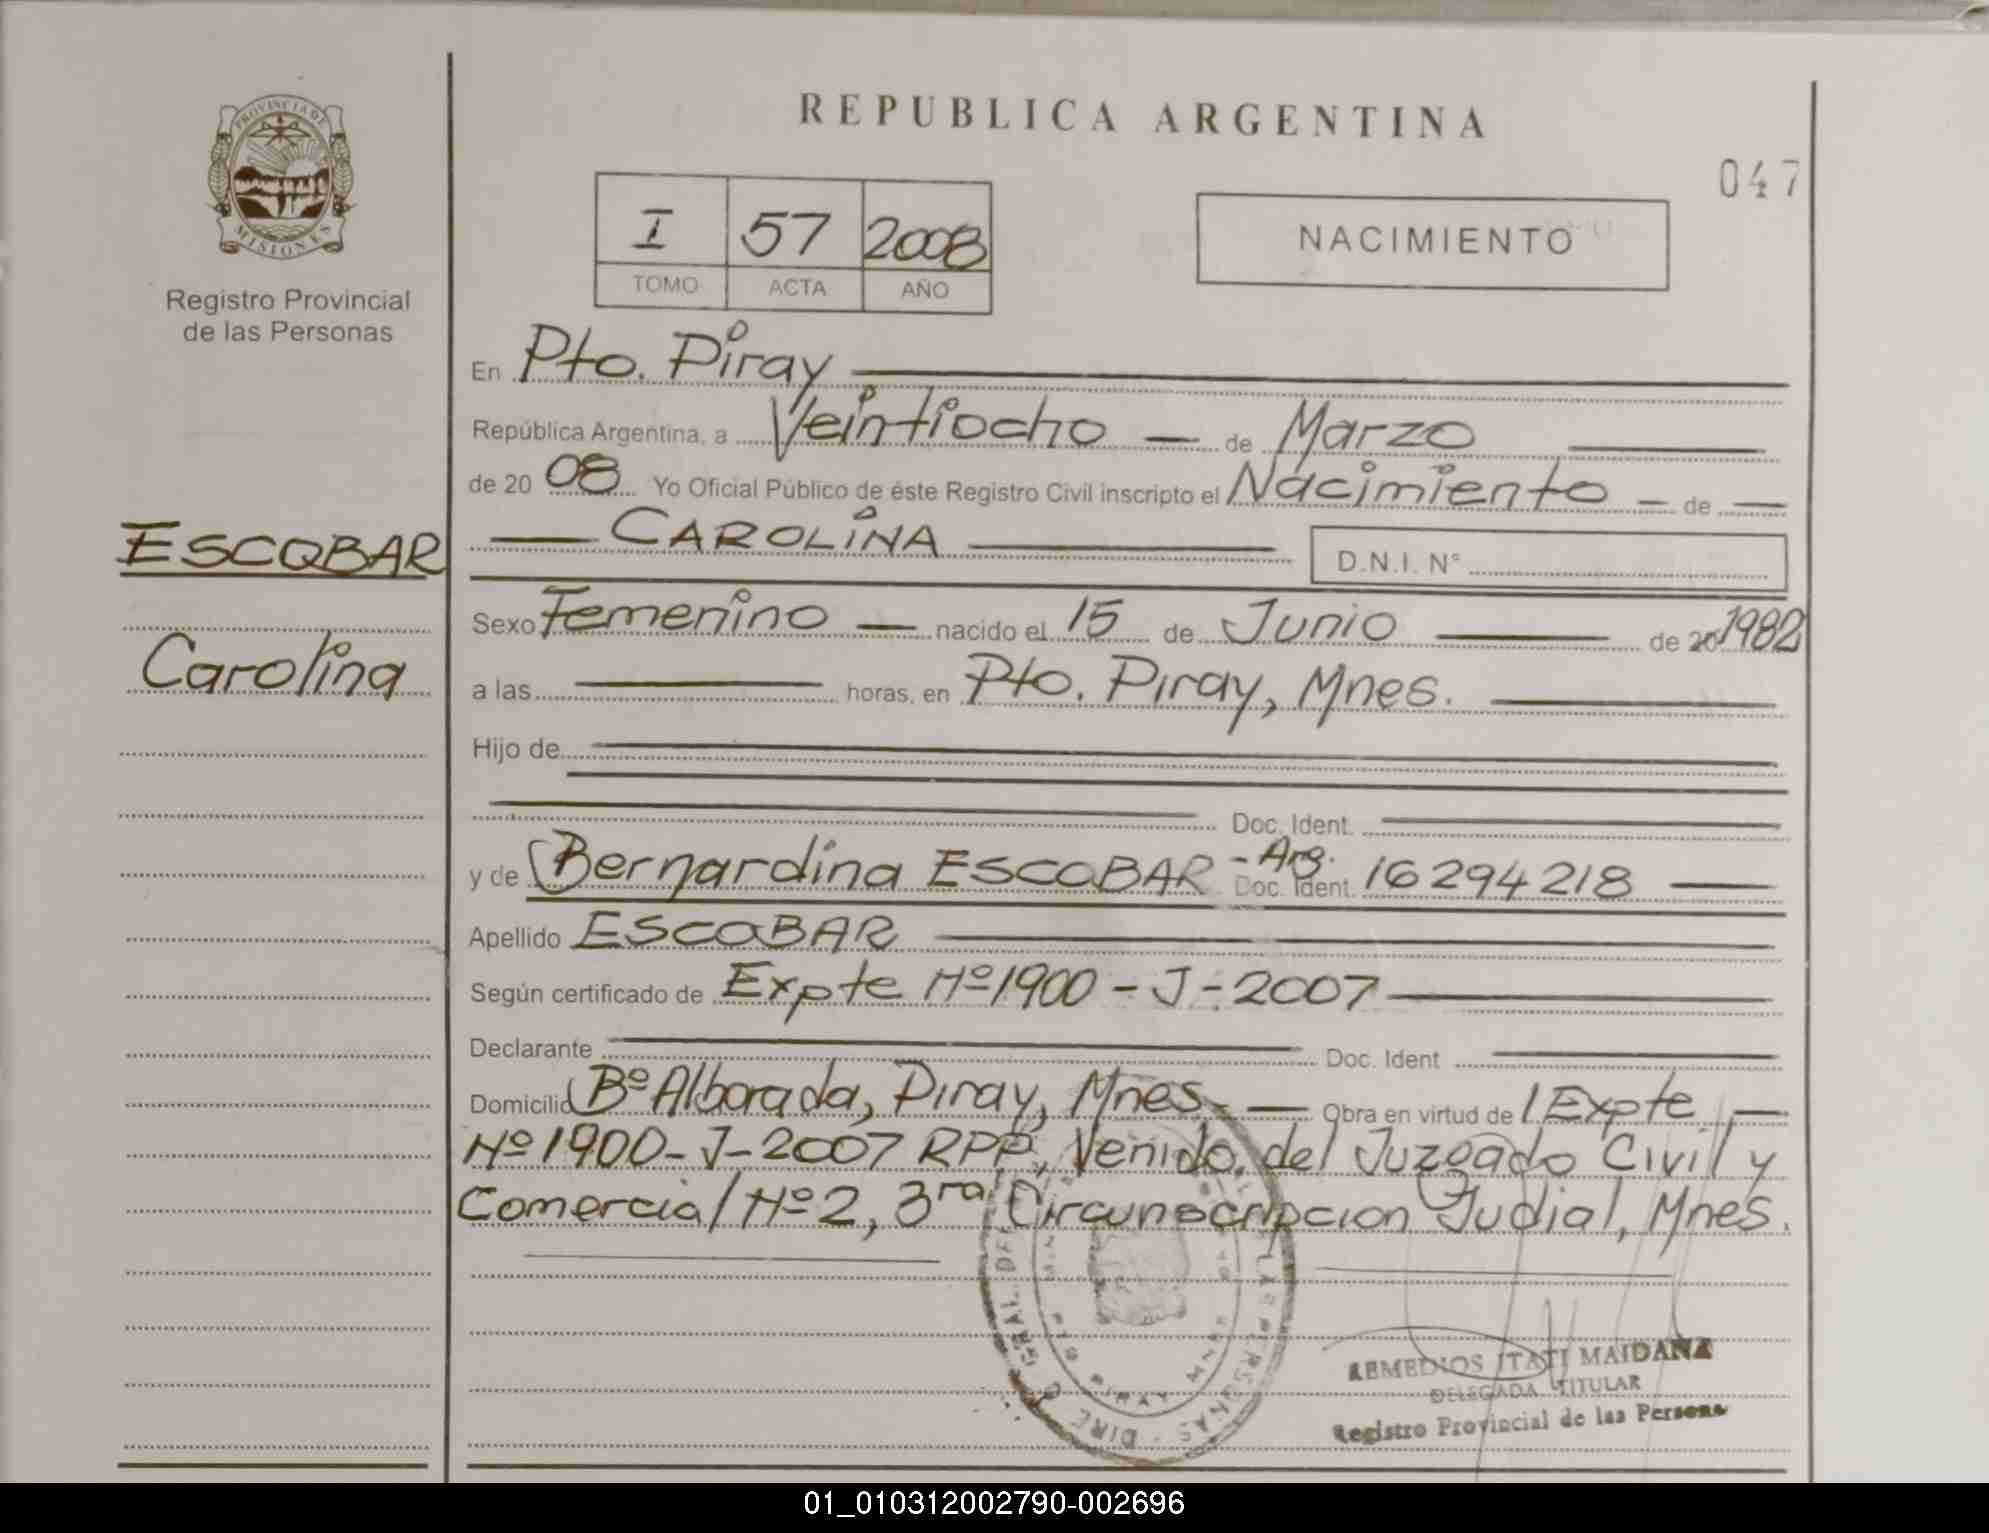 PROVINCIA DE
MISIONES
Registro Provincial
de las Personas
ESCOBAR
Carolina
REPUBLICA ARGENTINA
047
I 57 2008
TOMO ACTA AÑO
NACIMIENTO
En Pto. Piray
República Argentina, a Veintiocho — de Marzo
de 20 08 Yo Oficial Público de éste Registro Civil inscripto el Nacimiento — de —
— CAROLINA — D.N.I. N°
Sexo Femenino — nacido el 15 de Junio — de 20 1982
a las — horas, en Pto. Piray, Mnes. —
Hijo de
Doc. Ident.
y de Bernardina ESCOBAR - Arg. Doc. Ident. 16294218 —
Apellido ESCOBAR
Según certificado de Expte Nº 1900 - J - 2007
Declarante — Doc. Ident
Domicilio Bº Alborada, Piray, Mnes. — Obra en virtud de Expte —
Nº 1900 - J - 2007 RPP, Venido del Juzgado Civil y
Comercial Nº 2, 3ra Circunscripcion Judial, Mnes.
PTO PIRAY MNES
REMEDIOS ITATI MAIDANA
DELEGADA TITULAR
Registro Provincial de las Persona
01_010312002790-002696